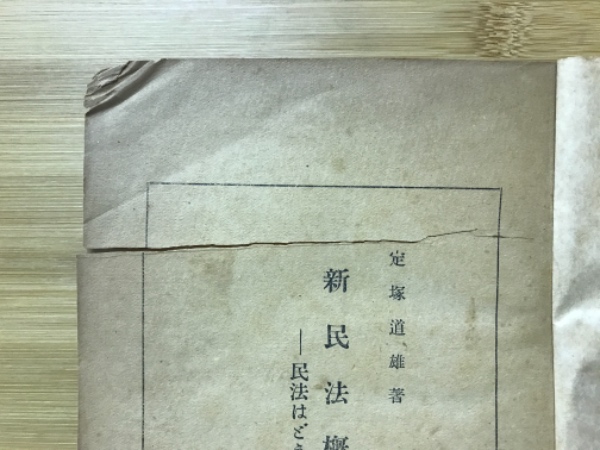 定塚道雄著
新民法概
―民法はどう